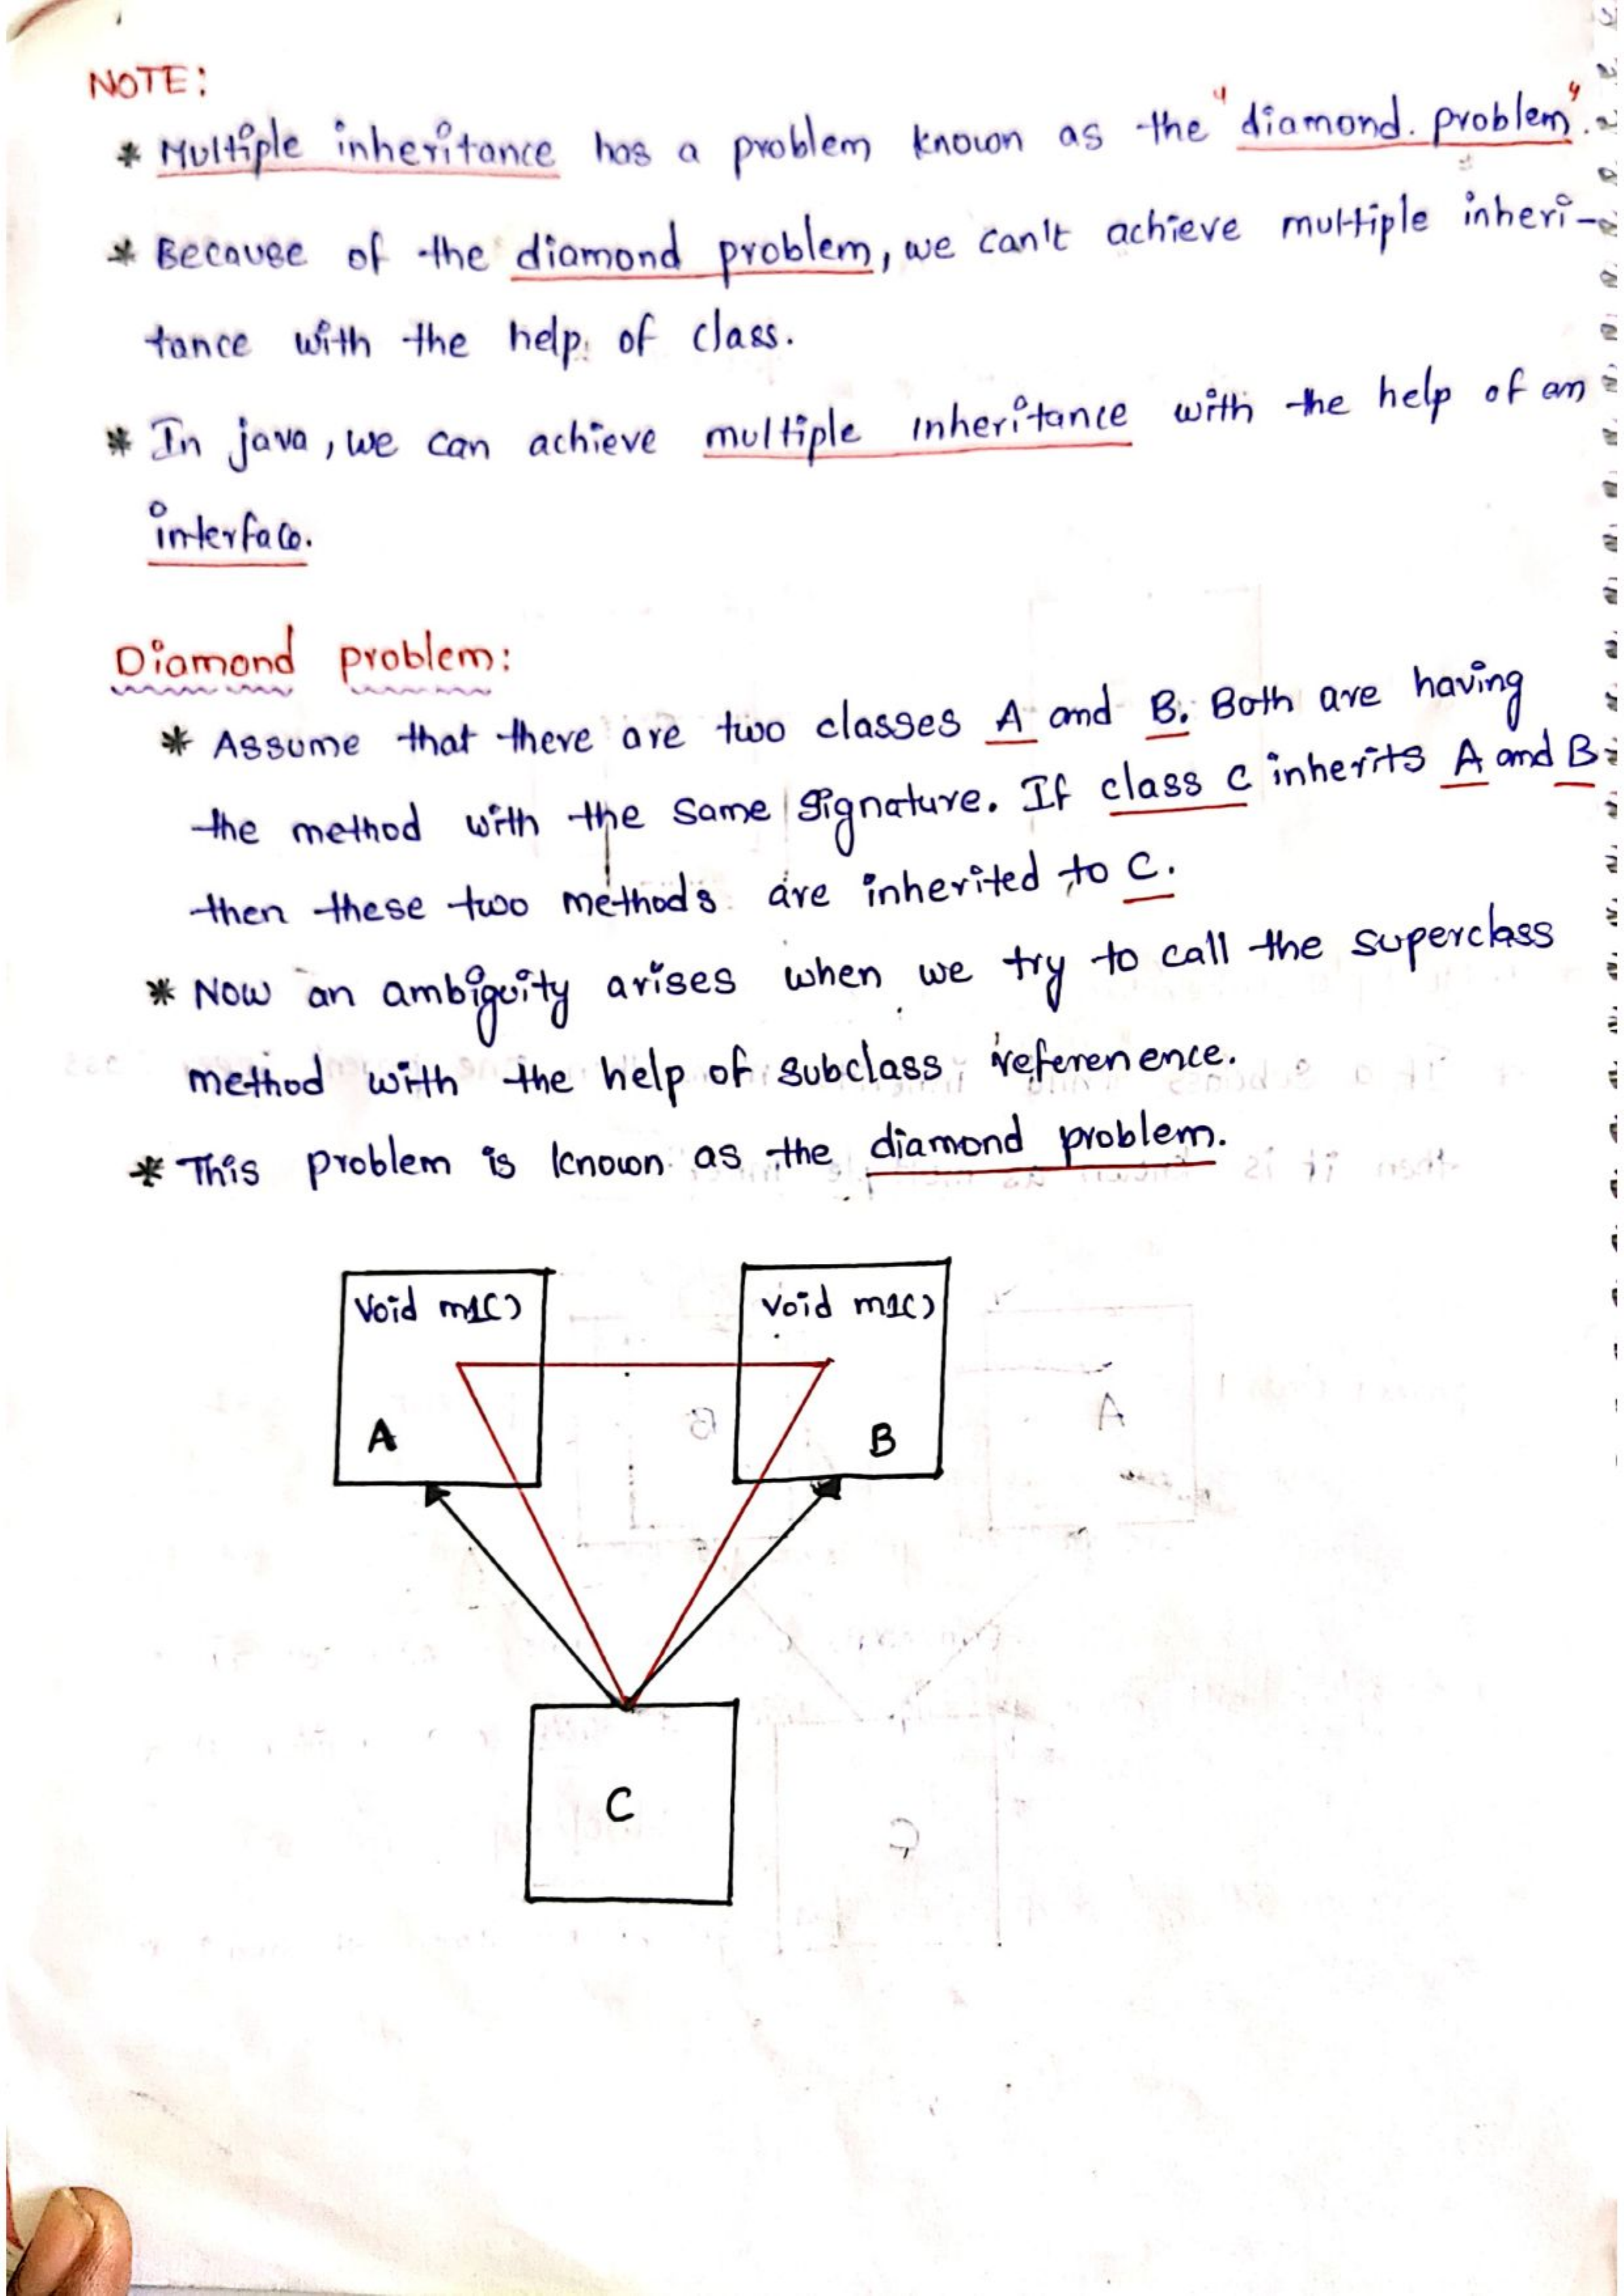 NOTE:
* Multiple inheritance has a problem known as the "diamond. problem".
* Because of the diamond problem, we can't achieve multiple inheri-
tance with the help of class.
* In java, we can achieve multiple inheritance with the help of an
interface.
Diamond problem:
* Assume that there are two classes A and B. Both are having
the method with the same signature. If class C inherits A and B
then these two methods are inherited to C.
* Now an ambiguity arises when we try to call the superclass
method with the help of subclass referenence.
* This problem is known as the diamond problem.
Void m1() Void m1()
A B
C